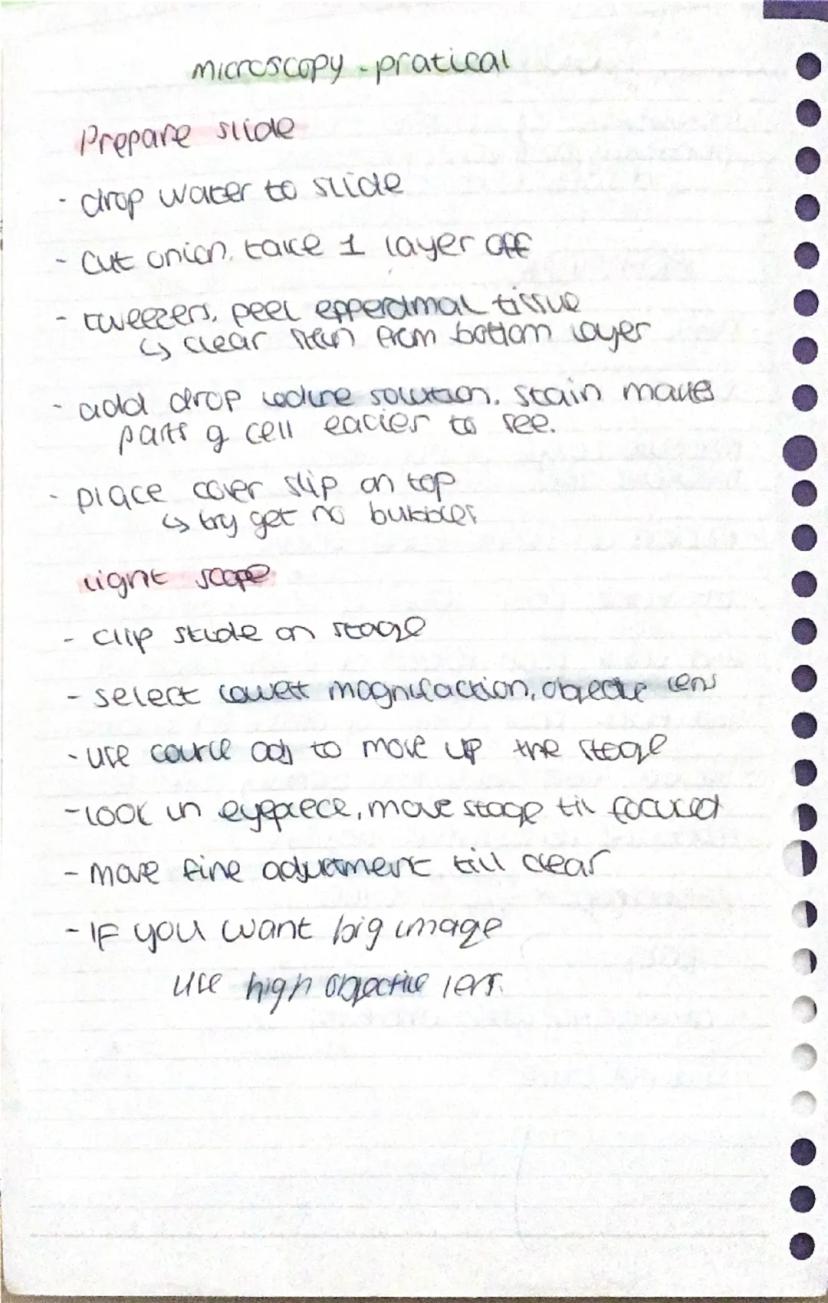 microscopy - pratical
Prepare slide
- drop water to slide
- cut onion, take 1 layer off
- tweezers, peel epperdmal tissue
↳ clear skin from bottom layer
- add drop iodine solution. stain makes
parts of cell eacier to see.
- place cover slip on top
↳ try get no bubbles
light scope
- clip slide on stage
- select lowest magnifaction, objective lens
- use course adj to move up the stage
- look in eyepiece, move stage till focused
- move fine adjustment till clear
- If you want big image
use high objective lens.